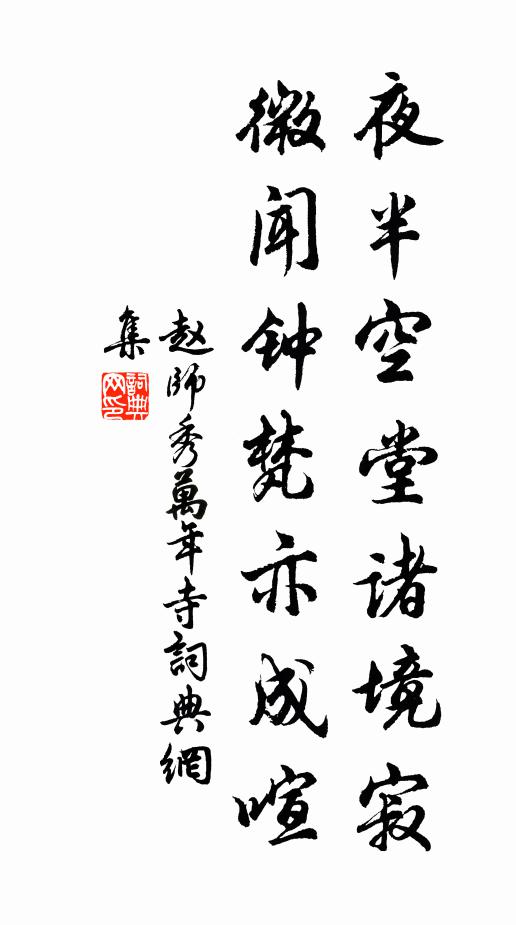 夜半空堂诸境寂
微闻钟梵亦成喧
赵師秀萬年寺詞典網
集
詞典
网印